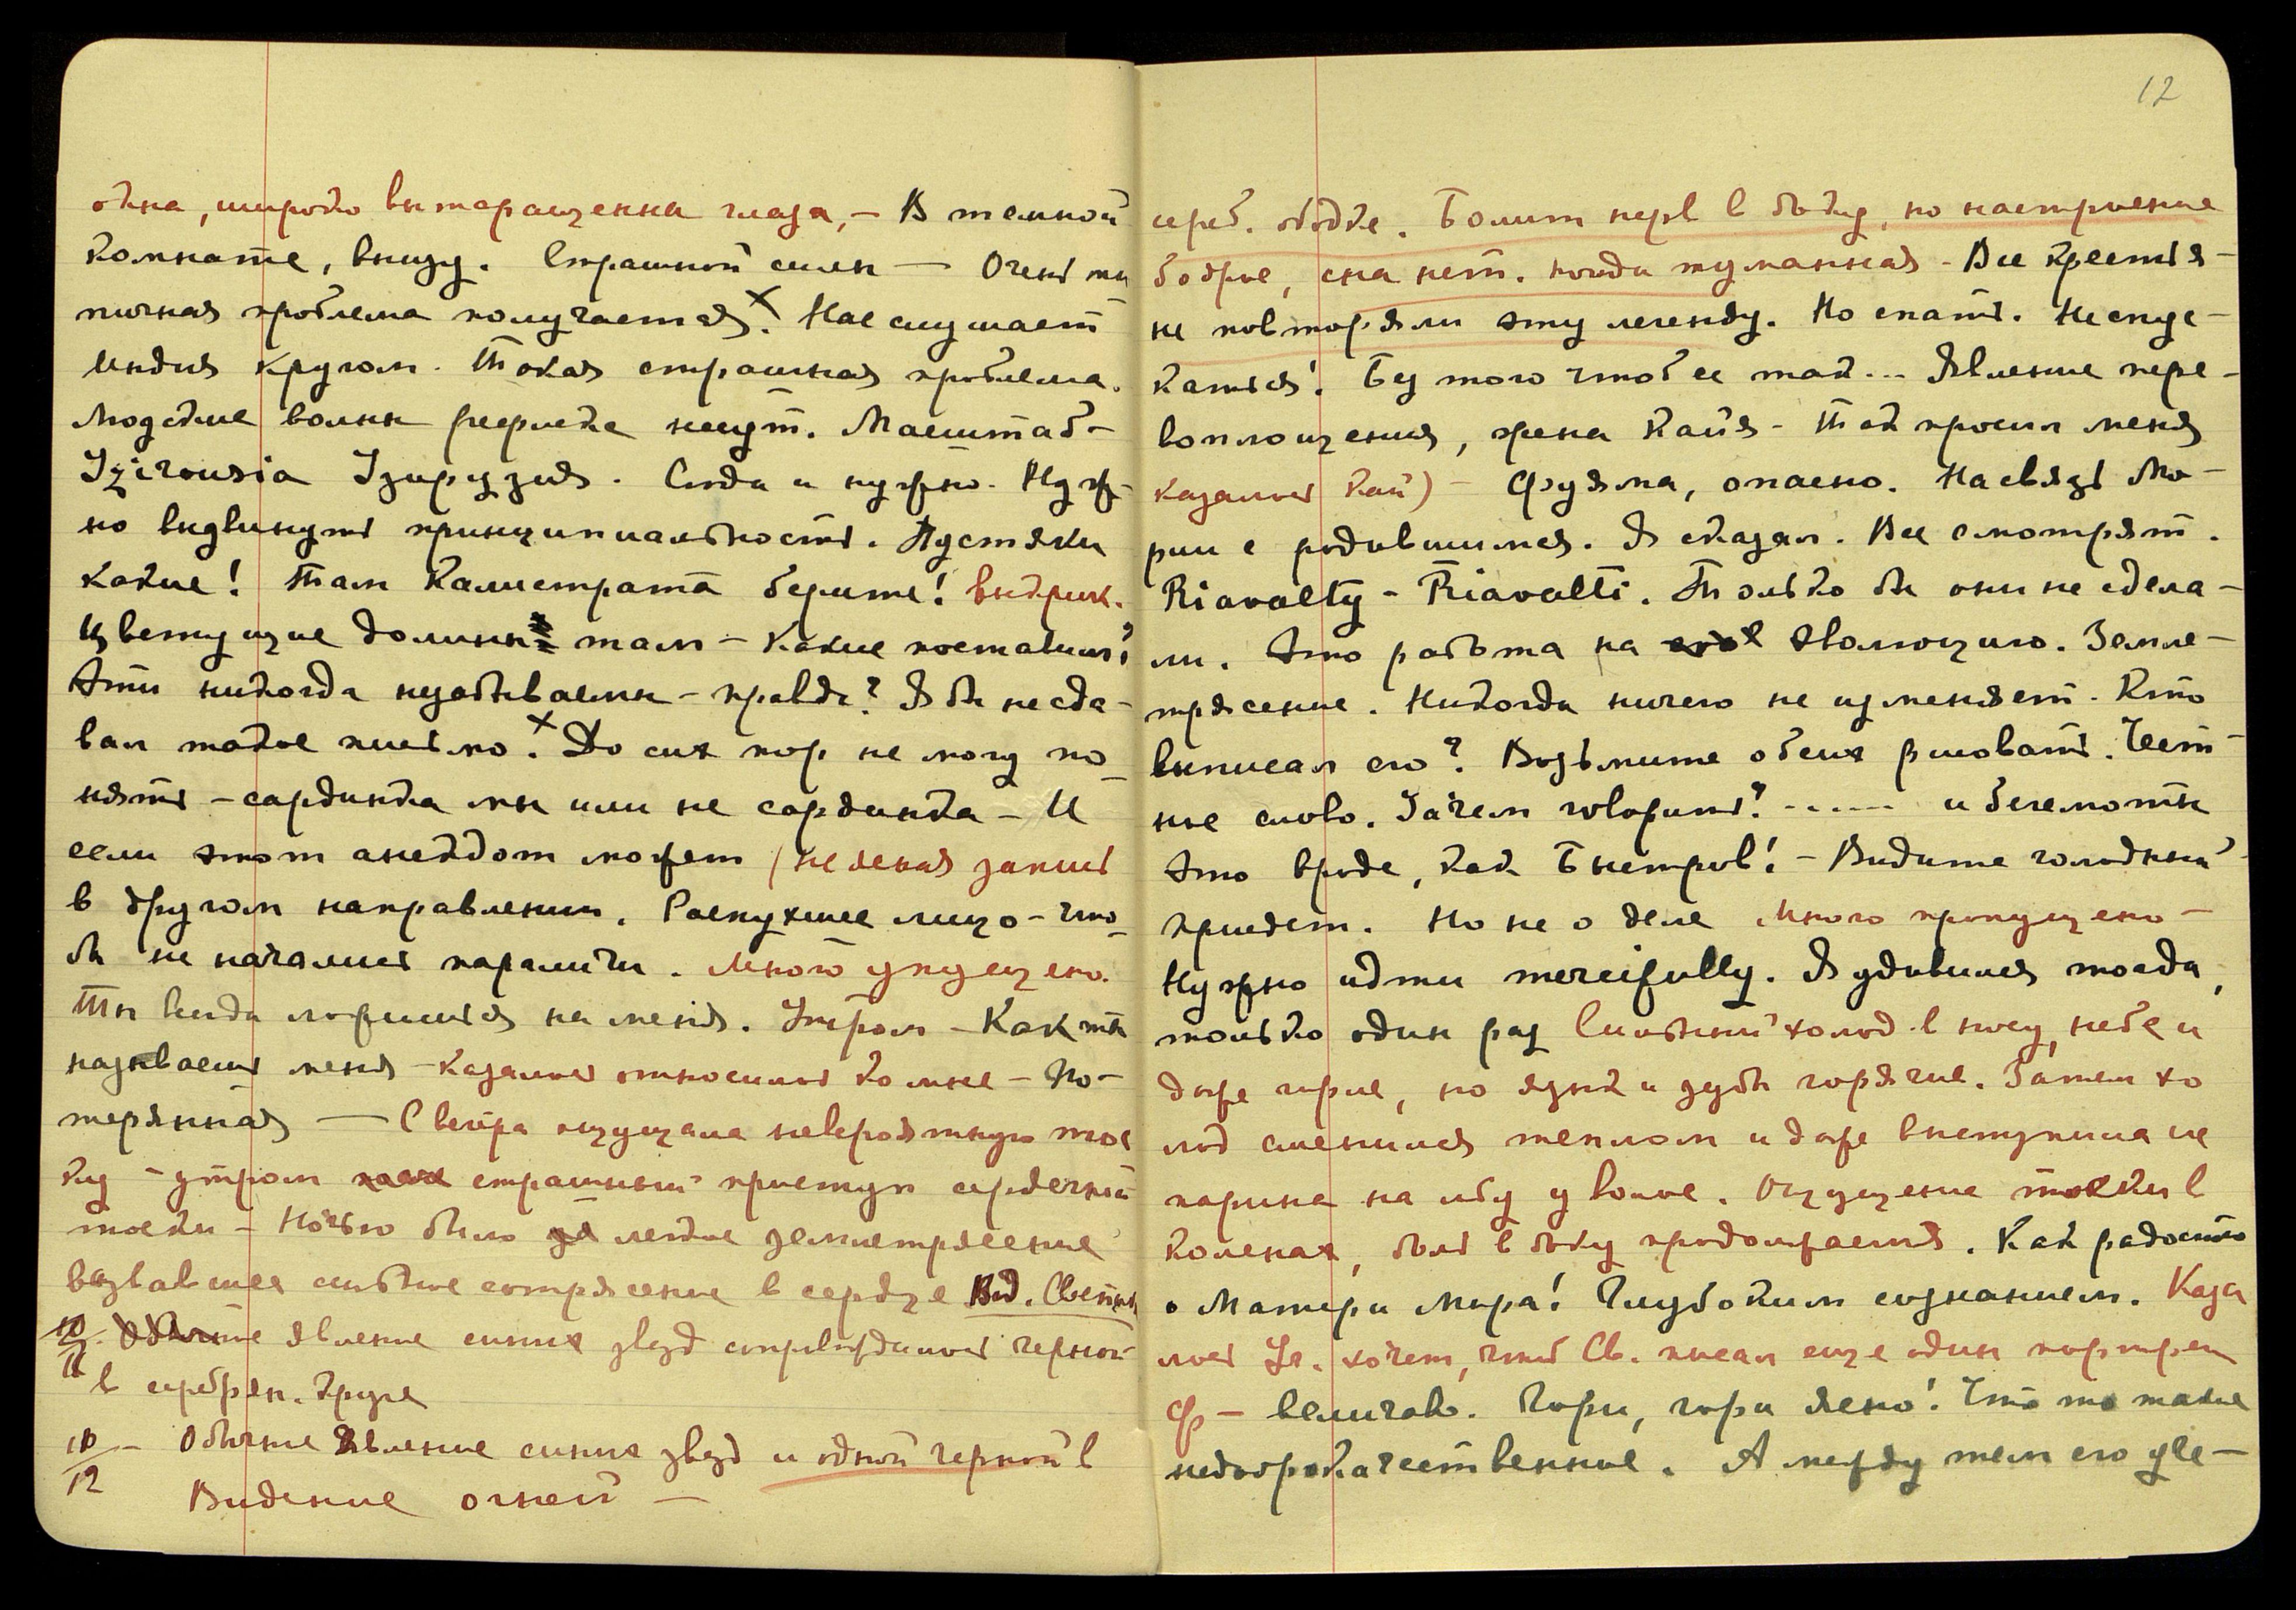 окна, широко вытаращенны глаза, – В темной
комнате, внизу. Страшной силы — Очень ти
пичная проблема получается. Нас слушает
Индия кругом. Такая страшная проблема.
Людские волны рефлекс несут. Масштаб –
Izirousia Изируззия. Сюда и нужно. Нуж-
но выдвинуть принципиальность. Пустяки
какие! Там Калистрата берите! выкрик.
Цветущие долины там – Какие поставишь?
Эти никогда незабываемы – правда? Я бы не сда-
вал такое письмо. До сих пор не могу по-
нять – сардинка мы или не сардинка – И
если этот анекдот может (неясная запись
в другом направлении. Распухшее лицо – что-
бы не начались параличи. Много упущено.
Ты вида ложишься на меня. Утром – Как ты
называешь меня – казалось относилось ко мне – По-
терянная — С вечера ощущала невероятную тос
ку – утром страшный приступ сердечной
тоски – Ночью было легкое землетрясение
вызвавшее сильное сотрясение в сердце Вид. Светлый
10/11 явление синих звезд сопровождалось черной
в серебрян. круге
10/12 – Обычные явление синих звезд и одной черной в
Видение огней —
12
сереб. ободке. Болит нерв в боку, но настроение
бодрое, сна нет. погода туманная – Все крестья-
не повторяли эту легенду. Но спать. Не спус-
каться! Без того чтоб ее так... Явление пере-
воплощения, жена Кайя – Так просил меня
казалось Кай) – Фуяма, опасно. На связь Мо-
рии с родившимся. Я сказал. Все смотрят.
Riavalty – Riavalti. Только бы они не сдела-
ли. Это работа на эволюцию. Земле-
трясение. Никогда ничего не изменяет. Кто
выписал его? Возьмите обеих рисовать. Чест-
ное слово. Зачем говорить? ...... и бегемоты
Это вроде, как Быстров! – Видите голодный
приедет. Но не о деле Много пропущено –
Нужно идти mercifully. Я удивился тогда,
только один раз Сильный холод в носу, небе и
даже горле, но язык и зубы горячие. Затем хо
лод сменился теплом и даже выступила ис
парина на лбу у волос. Ощущение тоски в
коленах, боль в боку продолжается. Как радостно
о Матери Мира! Глубоким сознанием. Каза
лось Уч. хочет, чтоб Св. писал еще один портрет
Ф – величаво. Гори, гори ясно! Что то такие
недоброкачественные. А между тем его уве-